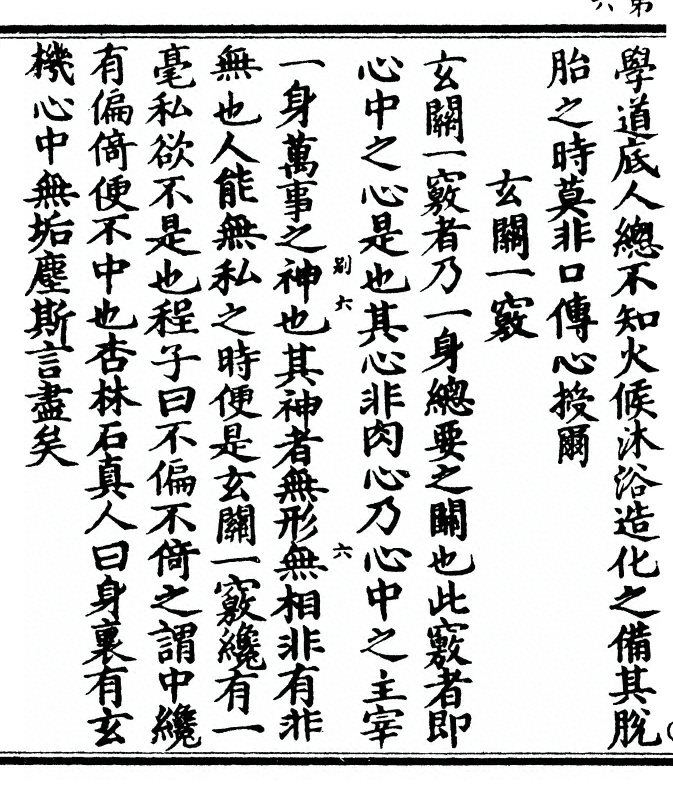 第
六
學道底人總不知火候沐浴造化之備其脫
胎之時莫非口傳心授爾
玄關一竅
玄關一竅者乃一身總要之關也此竅者即
心中之心是也其心非肉心乃心中之主宰
别六
六
一身萬事之神也其神者無形無相非有非
無也人能無私之時便是玄關一竅纔有一
毫私欲不是也程子曰不偏不倚之謂中纔
有偏倚便不中也杏林石真人曰身裏有玄
機心中無垢塵斯言盡矣